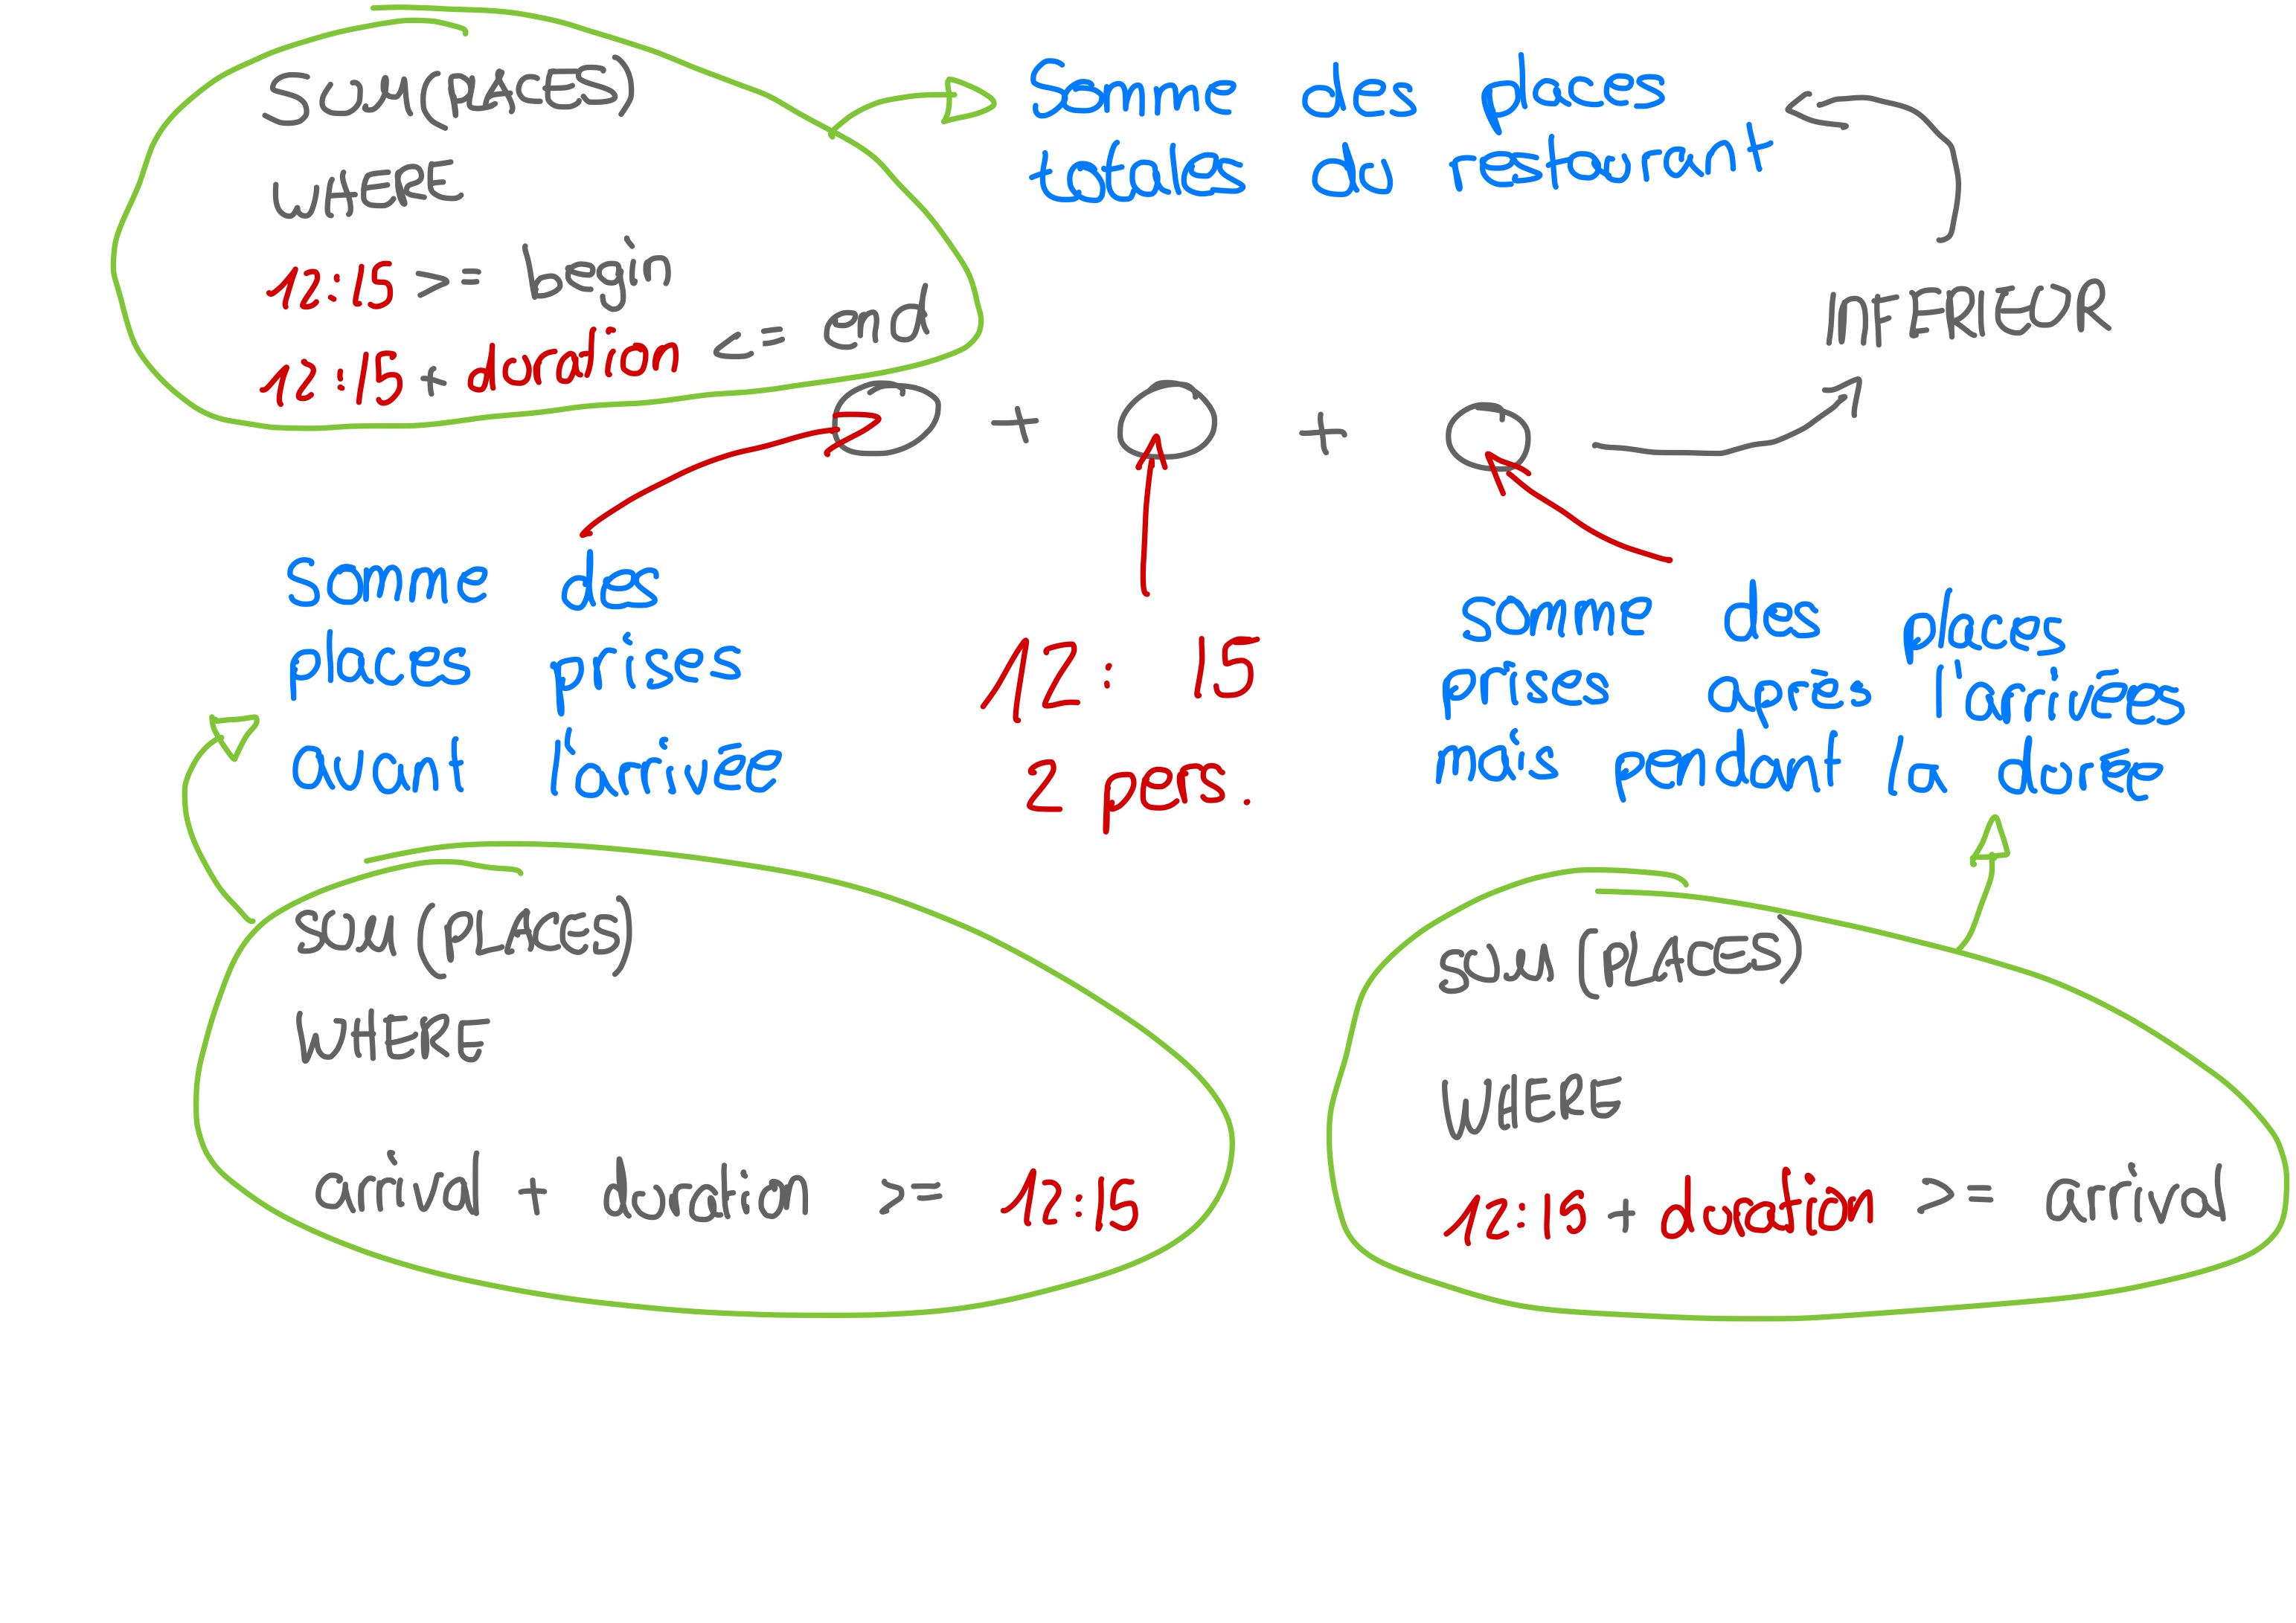 SUM(PLACES)
WHERE
12:15 >= begin
12:15 + duration <= end
Somme des places
totales du restaurant
INFERIEUR
+ +
Somme des
places prises
avant l'arivée
12:15
2 pers.
somme des places
prises après l'arrivées
mais pendant la durée
SUM(PLACES)
WHERE
arrival + duration >= 12:15
SUM(PLACES)
WHERE
12:15 + duration >= arrival